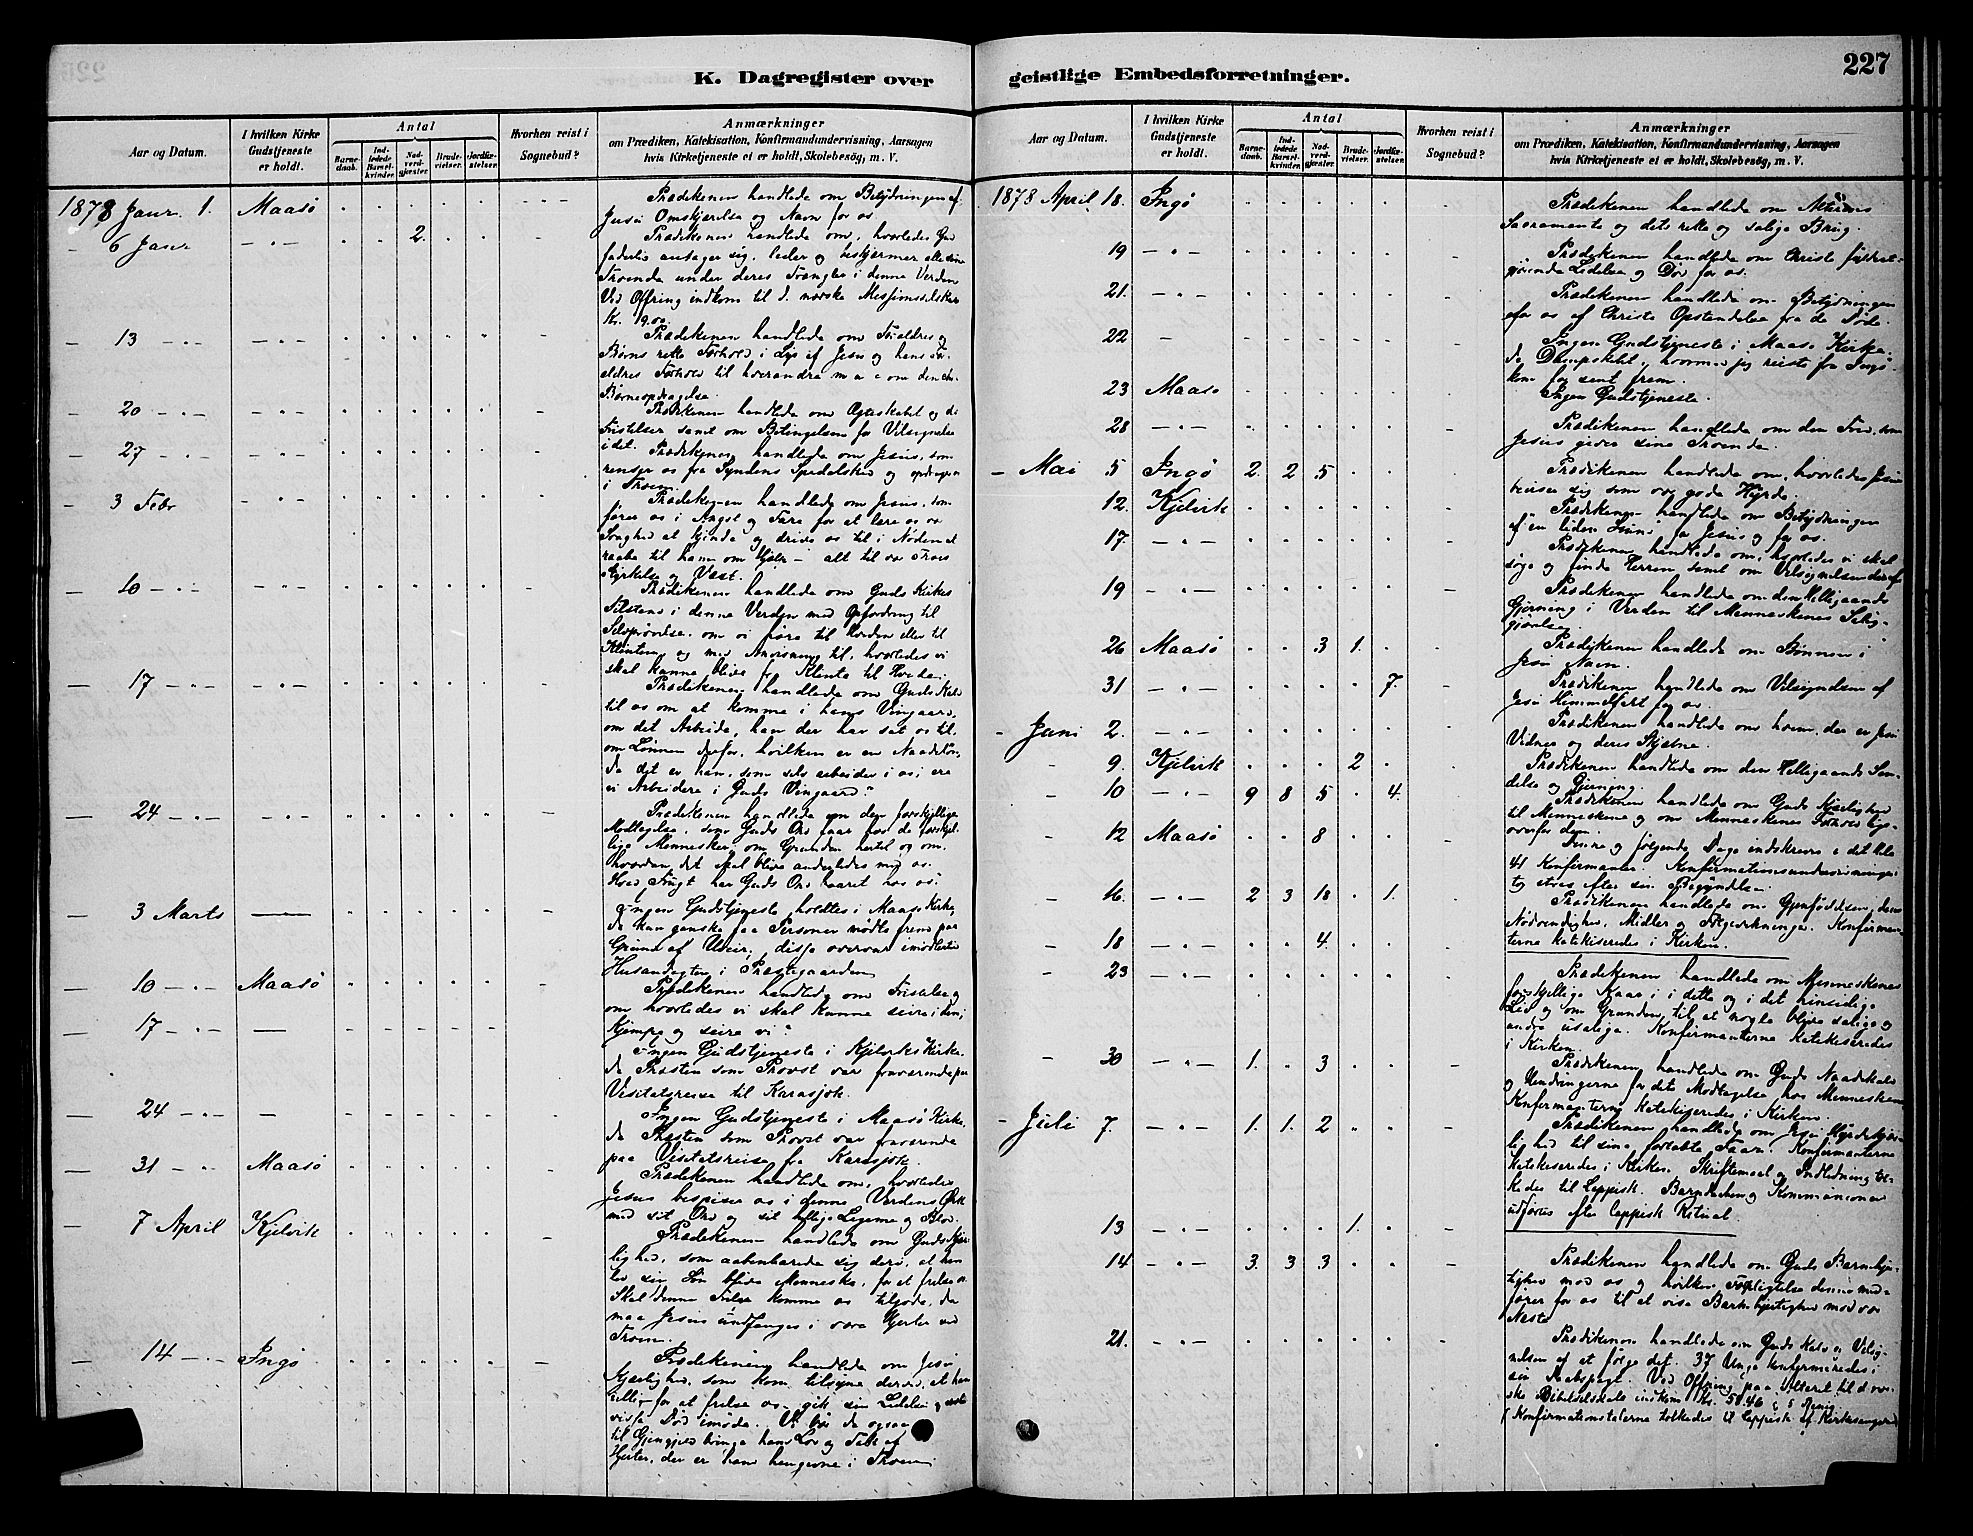 K. Dagregister over geistlige Embedsforretninger.
227
Aar og Datum.
I hvilken Kirke Gudstjeneste er holdt.
Antal
Barnedaab.
Indledede Barselkvinder.
Nadverdgjæster.
Brudevielser.
Jordfæstelser.
Hvorhen reist i Sognebud?
Anmærkninger
om Prædiken, Katekisation, Konfirmandundervisning, Aarsagen
hvis Kirketjeneste ei er holdt, Skolebesøg, m. V.
1878 Janr. 1. Maasø
Prædikenen handlede om Betydningen af
Jesu Omskjærelse og Navn for os
– 6 Janr – " – 2.
Prædikenen handlede om, hvorledes Gud
faderlig antager sig, leder og beskjærmer alle sine
Troende under deres Trængsler i denne Verden
Ved Offring indkom til d. norske Missionsselskab
Kr. 19.00.
– 13 – " – – " –
Prædikenen handlede om Forældres og
Børns rette Forhold i Lys af Jesus og hans For-
ældres Forhold til hverandre
Børneopdragelse.
– 20 – " – – " –
Prædikenen handlede om Ægteskabet og de
Fristelser samt om Betingelsen for Velsignelse
i det.
– 27 – " – – " –
Prædikenen handlede om Jesus, som
renser os fra Syndens Spedalskhed og opdrager os
i Troen.
– 3 Febr – " –
Prædikenen handlede om Jesus, som
fører os i Angst og Fare for at lære os vor
Svaghed at kjende og drive os til i Nøden at
raabe til ham om Hjælp – alt til vor Troes
Styrkelse og Væxt.
– 10 – " – – " –
Prædikenen handlede om Guds Kirkes
Tilstand i denne Verden med Opfordring til
Selvprøvelse, om vi høre til Hveden eller til
Klinten, og med Anvisning til, hvorledes vi
skal kunne blive fra Klinte til Hvede.
– 17 – " – – " –
Prædikenen handlede om Guds Kald
til os om at komme i hans Vingaard,
om det Arbeide, han der har sat os til,
om Lønnen derfor, hvilken er en Naadeløn,
da det er ham, som selv arbeider i os; ere
vi Arbeidere i Guds Vingaard?
– 24 – " – – " –
Prædikenen handlede om den forskjellige
Modtagelse, som Guds Ord faar hos de forskjel-
lige Mennesker, om Grunden hertil og om,
hvordan det skal blive anderledes med os.
Hvad Frugt har Guds Ord baaret hos os?
– 3 Marts –
Ingen Gudstjeneste holdtes i Maasø Kirke,
da kun ganske faa Personer mødte frem paa
Grund af Uveir; disse overvar imidlertid
Husandagten i Præstegaarden
– 10 – " – Maasø
Prædikenen handlede om Fristelse og
om hvorledes vi skal kunne seire i den;
Kjæmpe og seire vi?
– 17 – " – –
Ingen Gudstjeneste i Kjelviks Kirke,
da Præsten som Provst var fraværende paa
Visitatsreise til Karasjok.
– 24 – " – –
Ingen Gudstjeneste i Maasø Kirke,
da Præsten som Provst var fraværende
paa Visitatsreise fra Karasjok.
– 31 – " – Maasø
Prædikenen handlede om, hvorledes
Jesus bespiser os i denne Verdens Ørk
med sit Ord og sit hellige Legeme og Blod.
– 7 April Kjelvik
Prædikenen handlede om Guds Kjær-
lighed, som aabenbarede sig deri, at han
lod sin Søn blive Menneske, for at frelse os
Skal denne Frelse komme os tilgode, da
maa Jesus undfanges i vore Hjerter ved
Troen.
– 14 – " – Ingø
Prædikenen handlede om Jesu
Kjærlighed, som kom tilsyne derved, at han
villig for at frelse os – gik sin Lidelse og
visse Død imøde. Vi bør da ogsaa
til Gjengjæld bringe ham Lov og Tak af
Hjerter, der er ham hengivne i Troen
1878 April 18. Ingø
Prædikenen handlede om Alterens
Sacramente og dets rette og salige Brug.
19 – " –
Prædikenen handlede om Christi forson-
gjørende Lidelse og Død for os.
21. – " –
Prædikenen handlede om Betydningen
for os af Christi Opstandelse fra de Døde.
22 –
Ingen Gudstjeneste i Maasø Kirke,
da Dampskibet, hvormed jeg reiste fra Ingø
kom for sent frem.
23 Maasø
Ingen Gudstjeneste.
28 – " –
Prædikenen handlede om den Fred, som
Jesus giver sine Troende.
– Mai 5 Ingø 2. 2 5
Prædikenen handlede om, hvorledes Jesus
beviser sig som vor gode Hyrde.
12. Kjelvik
Prædikenen handlede om Betydningen
af "en liden Stund" for Jesus og for os.
17. – " –
Prædikenen handlede om, hvorledes vi skal
søge og finde Herren samt om Velsignelsen deraf
19 – " –
Prædikenen handlede om den Helligaands
Gjerning i Verden til Menneskenes Salig-
gjørelse.
26 Maasø 3 1.
Prædikenen handlede om Bønnen i
Jesu Navn.
31 – " – 7.
Prædikenen handlede om Velsignelsen af
Jesu Himmelfart for os.
– Juni 2. – " –
Prædikenen handlede om hvem, der er Jesu
Vidner og deres Skjæbne.
– 9. Kjelvik 2
Prædikenen handlede om den Helligaands Sen-
delse og Gjerning.
– 10 – " – 9 8 5 4.
Prædikenen handlede om Guds Kjærlighed
til Menneskene og om Menneskenes Forhold lige-
overfor den.
– 12 Maasø 8
Denne og følgende Dage indskreves i det Hele
41 Konfirmanter. Konfirmationsundervisningen
tog strax efter sin Begyndelse.
– 16. – " – 2 3 18 1.
Prædikenen handlede om Gjenfødelsen, dens
Nødvendighed, Midler og Følgevirkninger. Konfirman-
terne katekiseredes i Kirken.
– 18 – " – 4.
– 23 – " –
Prædikenen handlede om Menneskenes
forskjellige Kaar i dette og i det hinsidige
Liv og om Grunden til at nogle blive salige og
andre usalige. Konfirmanterne katekiseredes
i Kirken.
– 30 – " – 1. 3
Prædikenen handlede om Guds Naadekald
og Hindringerne for dets Modtagelse hos Menneskene
Konfirmanterne katekiseredes i Kirken.
– Juli 7. – " – 1. 1. 2
Prædikenen handlede om Jesu Hyrdekjær-
lighed til sine fortabte Faar. Konfirmanterne
katekiseredes i Kirken. Skriftemaal og Indledning tol-
kedes til Lappisk. Barnedaaben og Kommunionen
udførtes efter lappisk Ritual.
13 – " – 1.
14 – " – 3. 3 3
Prædikenen handlede om Guds Barmhjer-
tighed mod os og hvilken Forpligtelse denne med-
fører for os til at vise Barmhjertighed mod vor
Næste
21. – " –
Prædikenen handlede om Guds Kald og Velsig-
nelsen af at følge det. 37 Unge konfirmeredes i
sin Daabspagt. Ved Ofring paa Alteret til d. nor-
ske Bibelselskab indkom Kr. 5.46
(Konfirmationstalerne tolkedes til Lappisk af Kirkesangeren)